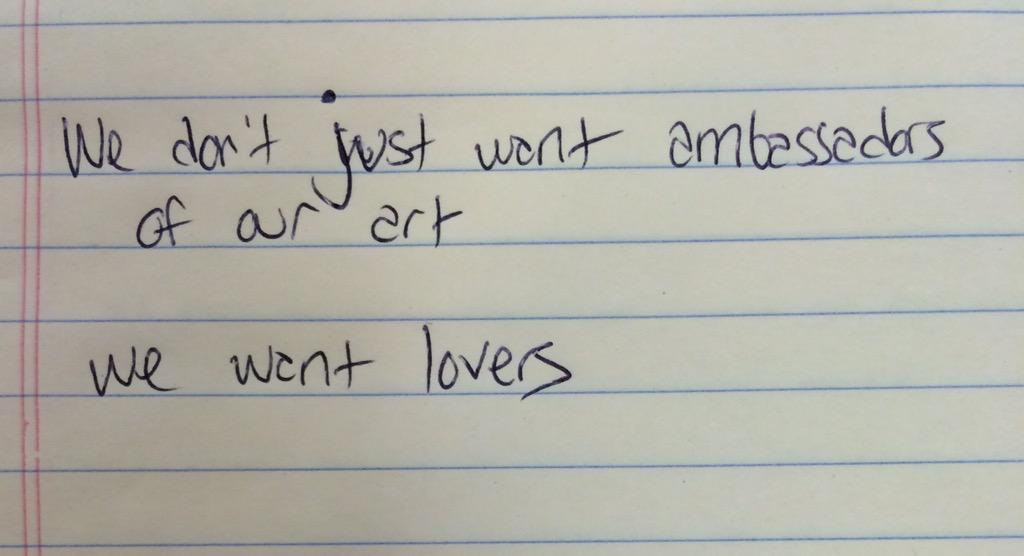 We don't just want ambassadors
of our art
we want lovers